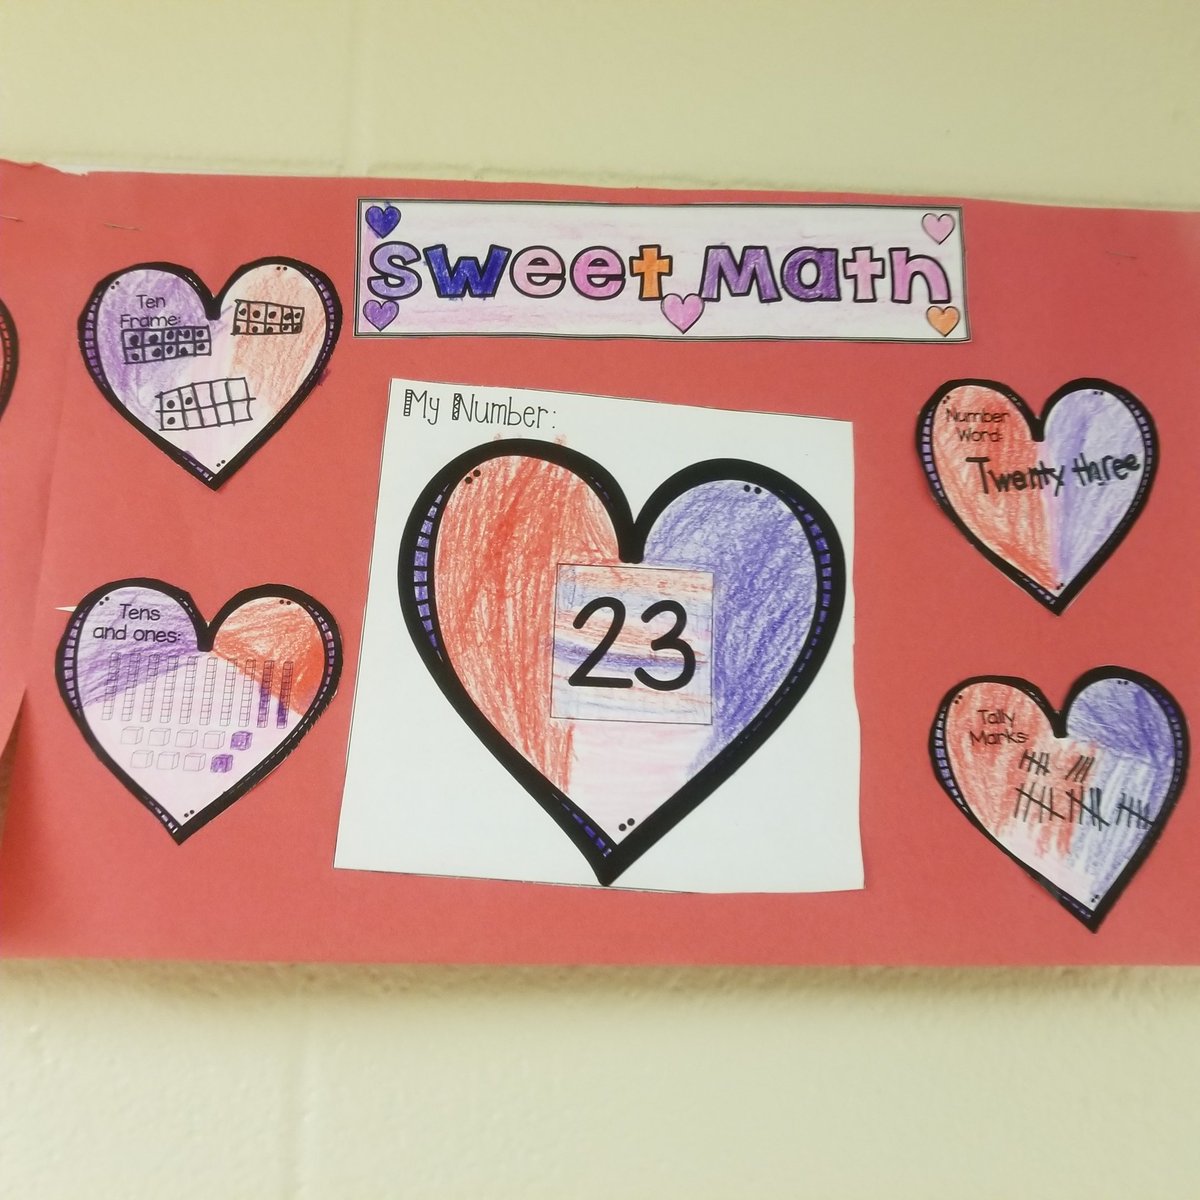 Sweet Math
My Number:
23
Ten
Frame:
Tens
and ones:
Number
Word:
Twenty three
Tally
Marks: